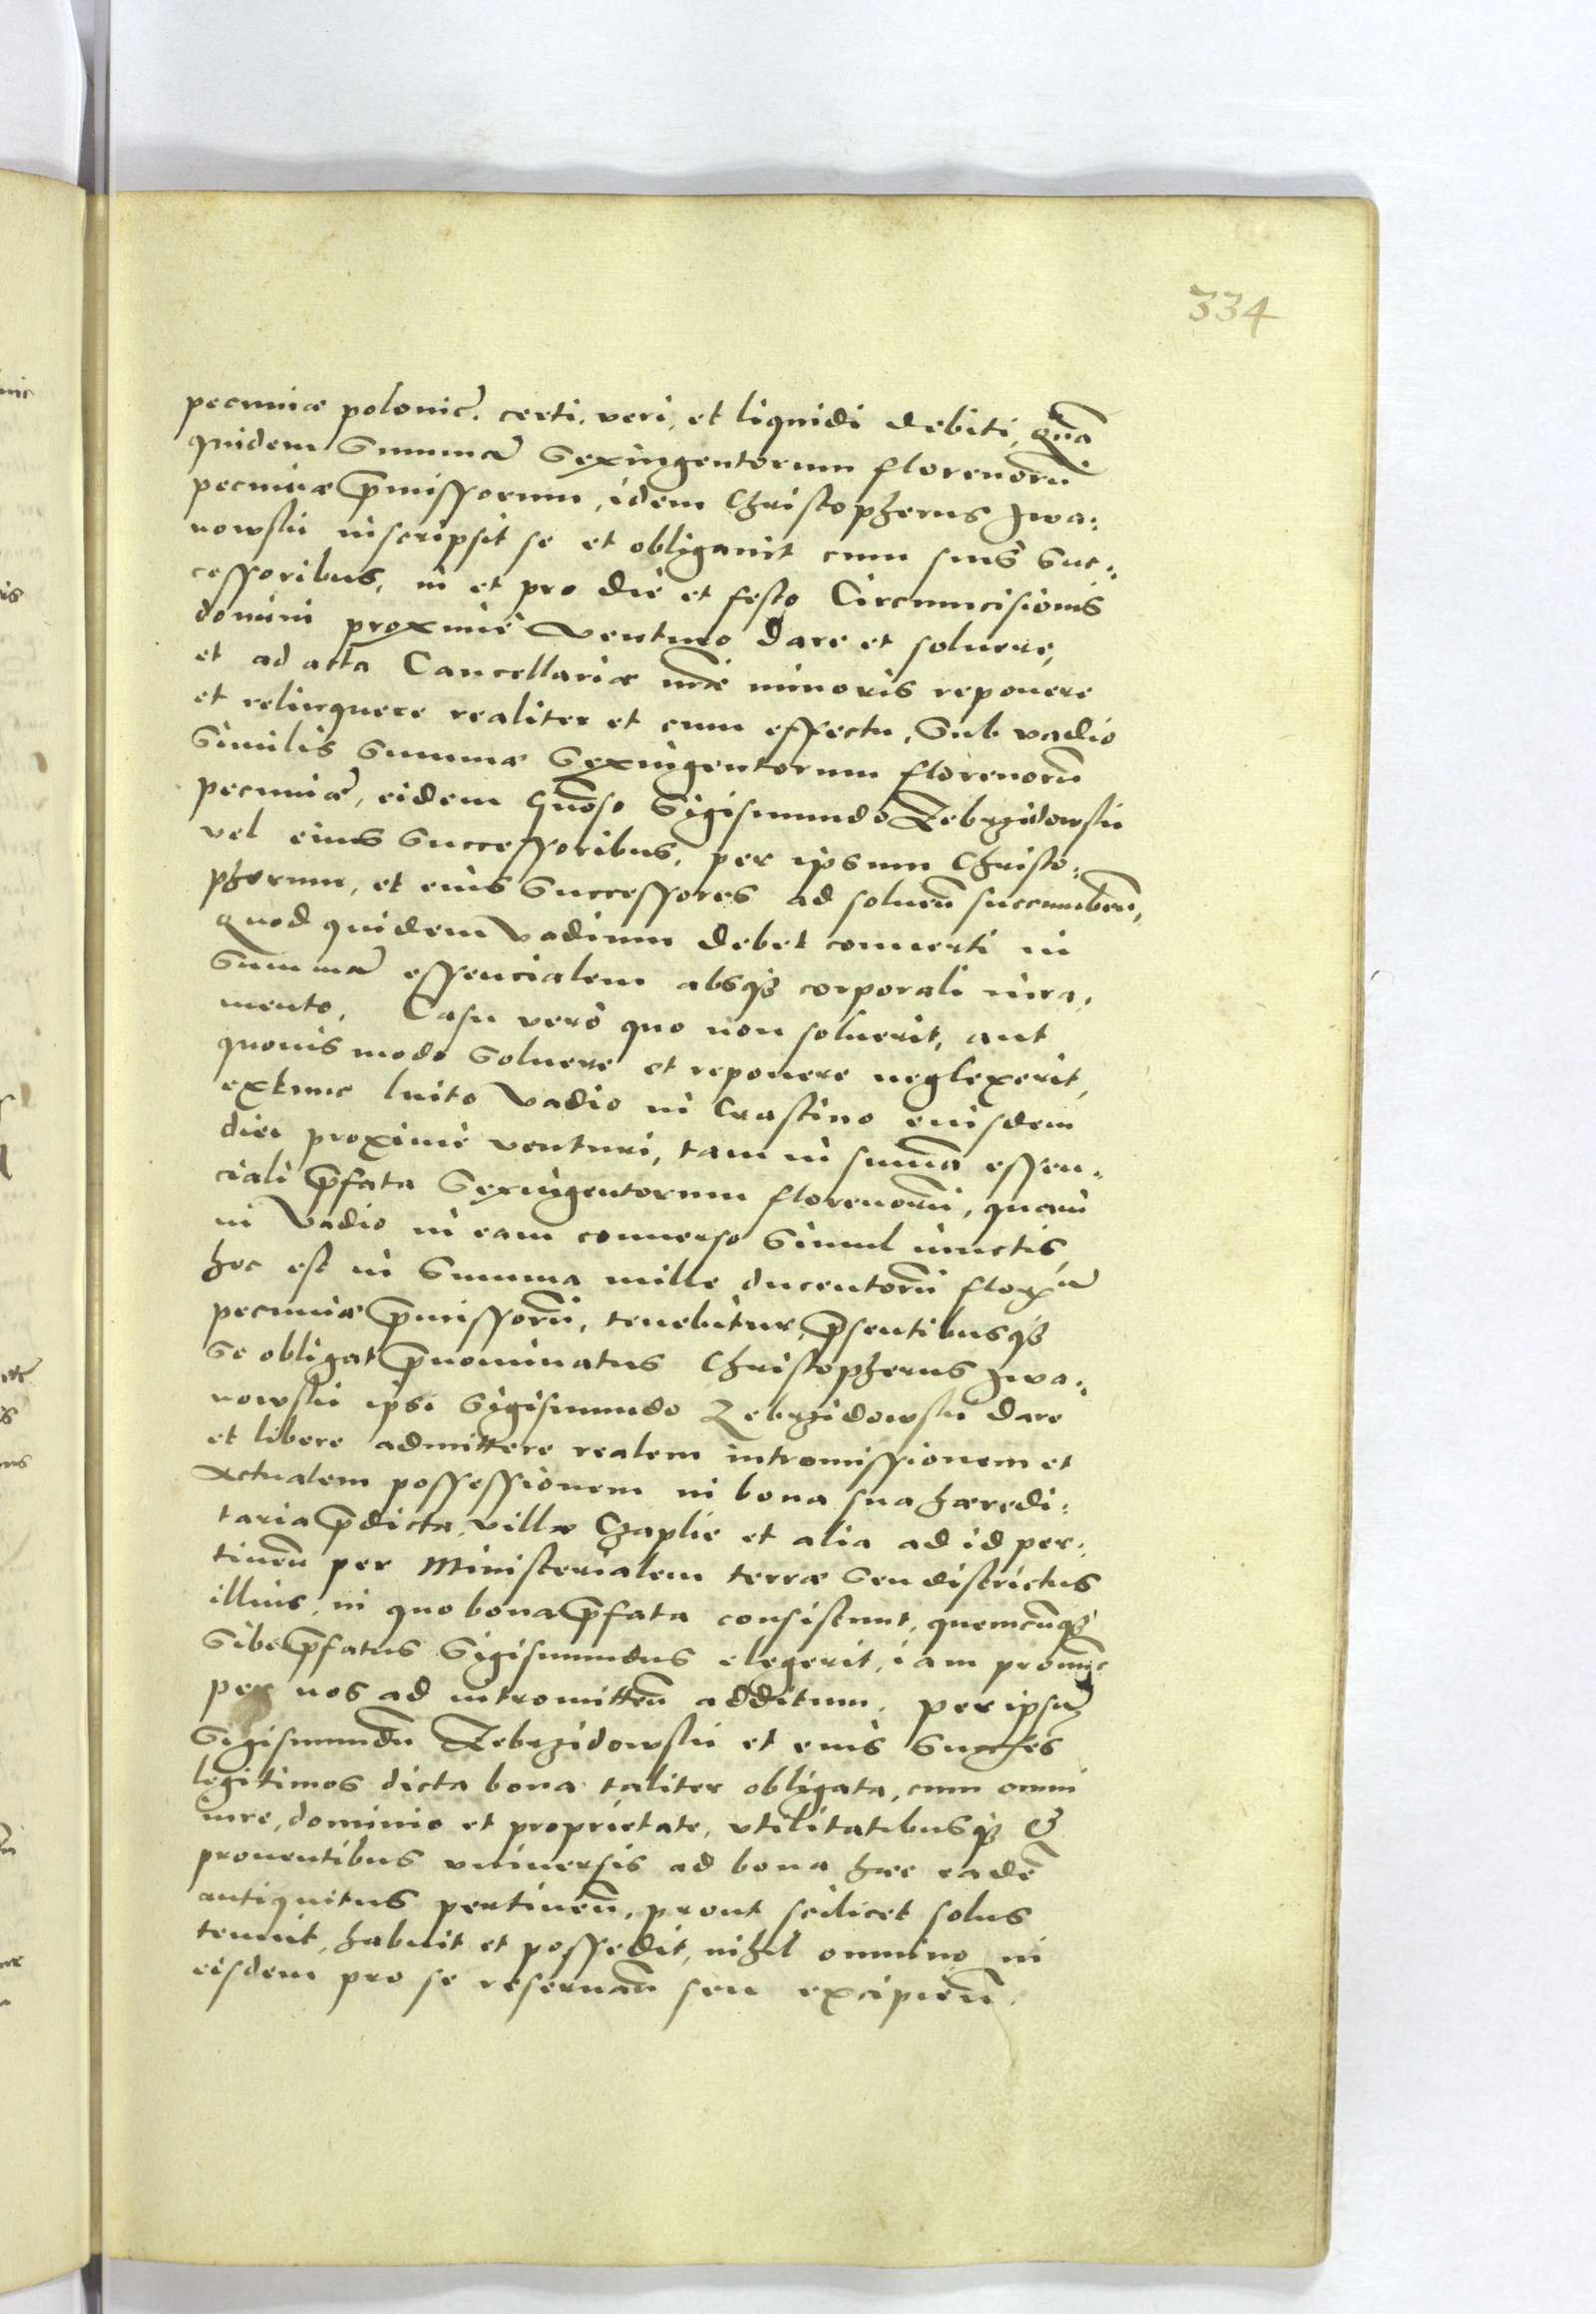 334
pecuniæ polonic̃. certi, veri, et liquidi debiti, quã
quidem Summã Sexingentorum florenorũ
pecuniæ p̃missorum, idem Christopherus Iwa:
nowskii inscripsit se et obligauit cum suis Suc:
cessoribus, in et pro die et festo Circumcisionis
domini proximè venturo dare et soluere,
et ad acta Cancellariæ nr̃æ minoris reponere
et relinquere realiter et cum effectu, Sub vadio
Similis Summæ Sexingentorum florenorũ
pecuniæ, eidem Gñoso Sigismundo Zebrzidowskii
vel eius Successoribus, per ipsum Christo:
pherum, et eius Successores ad soluen̄ succumben̄,
quod quidem vadium debet conuerti in
Summã essencialem absq3 corporali iura,
mento. Casu verò quo non soluerit, aut
quouis modo Soluere et reponere neglexerit,
extunc luito vadio in Crastino eiusdem
diei proximè venturi, tam in sum̃a essen:
ciali p̃fata Sexingentorum florenorũ, quam
in vadio in eam conuerso Simul iunctis,
hoc est in Summa mille ducentorũ florũ
pecuniæ p̃missorũ, tenebitur, p̃sentibusq3
Se obligat p̃nominatus Christopherus Iwa:
nowskii ipsi Sigismundo Zebrzidowskii dare
et libere admittere realem intromissionem et
actualem possessionem in bona sua hæredi:
taria p̃dicta, villæ Czaplie et alia ad id per:
tinen̄ per Ministerialem terræ Seu districtus
illius, in quo bona p̃fata consistunt, quemcũq3
Sibi p̃fatus Sigismundus elegerit, iam pronunc
per nos ad intromitten̄ additum, per ipsũ
Sigismundũ Zebrzidowskii et eius Succes̃
legitimos dicta bona taliter obligata, cum omni
iure, dominio et proprietate, vtilitatibusq3 &
prouentibus vniuersis ad bona hæc eadẽ
antiquitus pertinen̄, prout scilicet solus
tenuit, habuit et possedit, nihil omnino in
eisdem pro se reseruan̄ seu excipien̄.